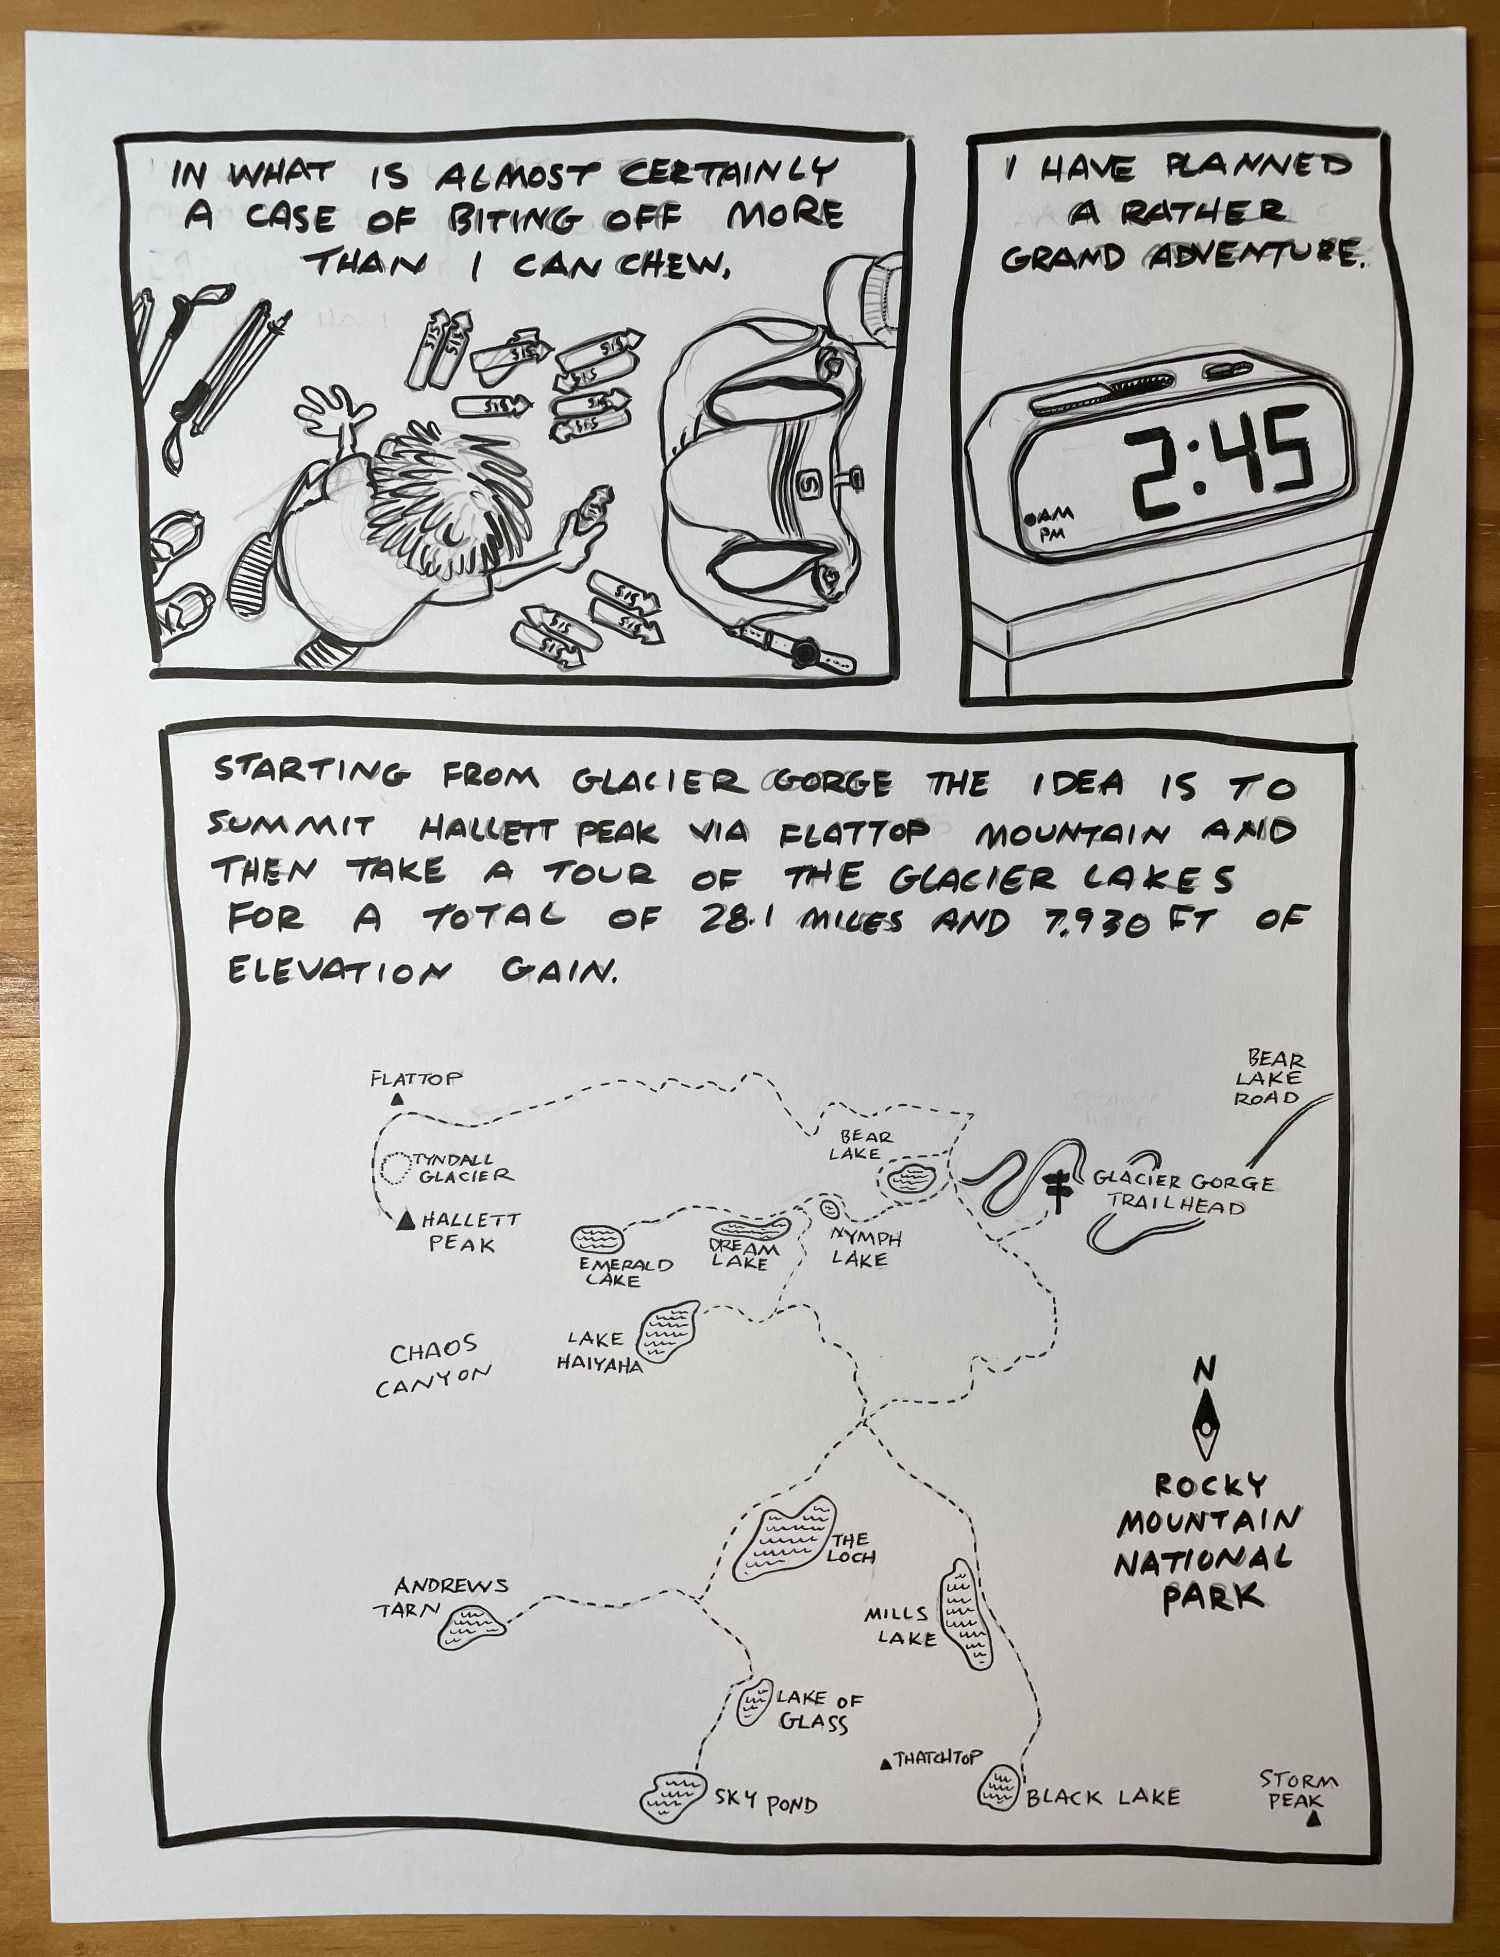 IN WHAT IS ALMOST CERTAINLY
A CASE OF BITING OFF MORE
THAN I CAN CHEW,
SIS
SIS
SIS
SIS
SIS
SIS
SIS
SIS
SIS
SIS
SIS
SIS
S
I HAVE PLANNED
A RATHER
GRAND ADVENTURE.
2:45
AM
PM
STARTING FROM GLACIER GORGE THE IDEA IS TO
SUMMIT HALLETT PEAK VIA FLATTOP MOUNTAIN AND
THEN TAKE A TOUR OF THE GLACIER LAKES
FOR A TOTAL OF 28.1 MILES AND 7,930 FT OF
ELEVATION GAIN.
FLATTOP
BEAR
LAKE
ROAD
BEAR
LAKE
TYNDALL
GLACIER
GLACIER GORGE
TRAILHEAD
HALLETT
PEAK
EMERALD
LAKE
DREAM
LAKE
NYMPH
LAKE
LAKE
HAIYAHA
CHAOS
CANYON
N
ROCKY
MOUNTAIN
NATIONAL
PARK
THE
LOCH
ANDREWS
TARN
MILLS
LAKE
LAKE OF
GLASS
THATCHTOP
SKY POND
BLACK LAKE
STORM
PEAK